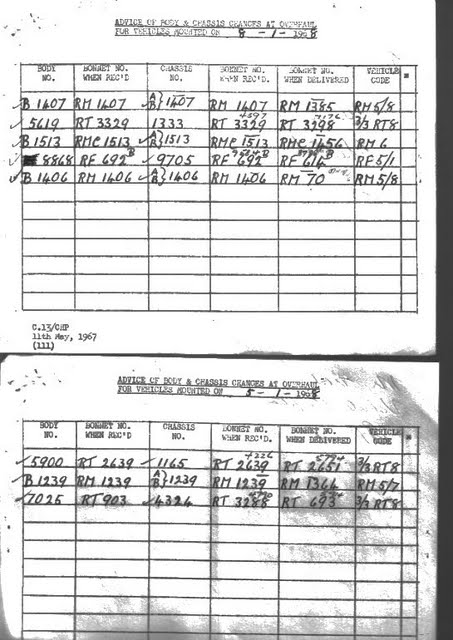 ADVICE OF BODY & CHASSIS CHANGES AT OVERHAUL
FOR VEHICLES MOUNTED ON 8 - 1 - 1968
BODY NO. BONNET NO. WHEN REC'D CHASSIS NO. BONNET NO. WHEN REC'D. BONNET NO. WHEN DELIVERED VEHICLE CODE
B 1407 RM 1407 A B } 1407 RM 1407 RM 1385 RM 5/8
5619 RT 3329 1333 RT 3329 RT 3298 3/3 RT8
B 1513 RMC 1513 A B } 1513 RMC 1513 RMC 1456 RM 6
8868 RF 692 B 9705 RF 692 B RF 614 B RF 5/1
B 1406 RM 1406 A B } 1406 RM 1406 RM 70 RM 5/8
C.13/CHP
11th May, 1967
(111)
ADVICE OF BODY & CHASSIS CHANGES AT OVERHAUL
FOR VEHICLES MOUNTED ON 5 - 1 - 1968
BODY NO. BONNET NO. WHEN REC'D CHASSIS NO. BONNET NO. WHEN REC'D. BONNET NO. WHEN DELIVERED VEHICLE CODE
5900 RT 2639 1165 4226 RT 2639 RT 2651 3/3 RT8
B 1239 RM 1239 A B } 1239 RM 1239 RM 1364 RM 5/7
7025 RT 903 4324 RT 3288 RT 693 3/3 RT8